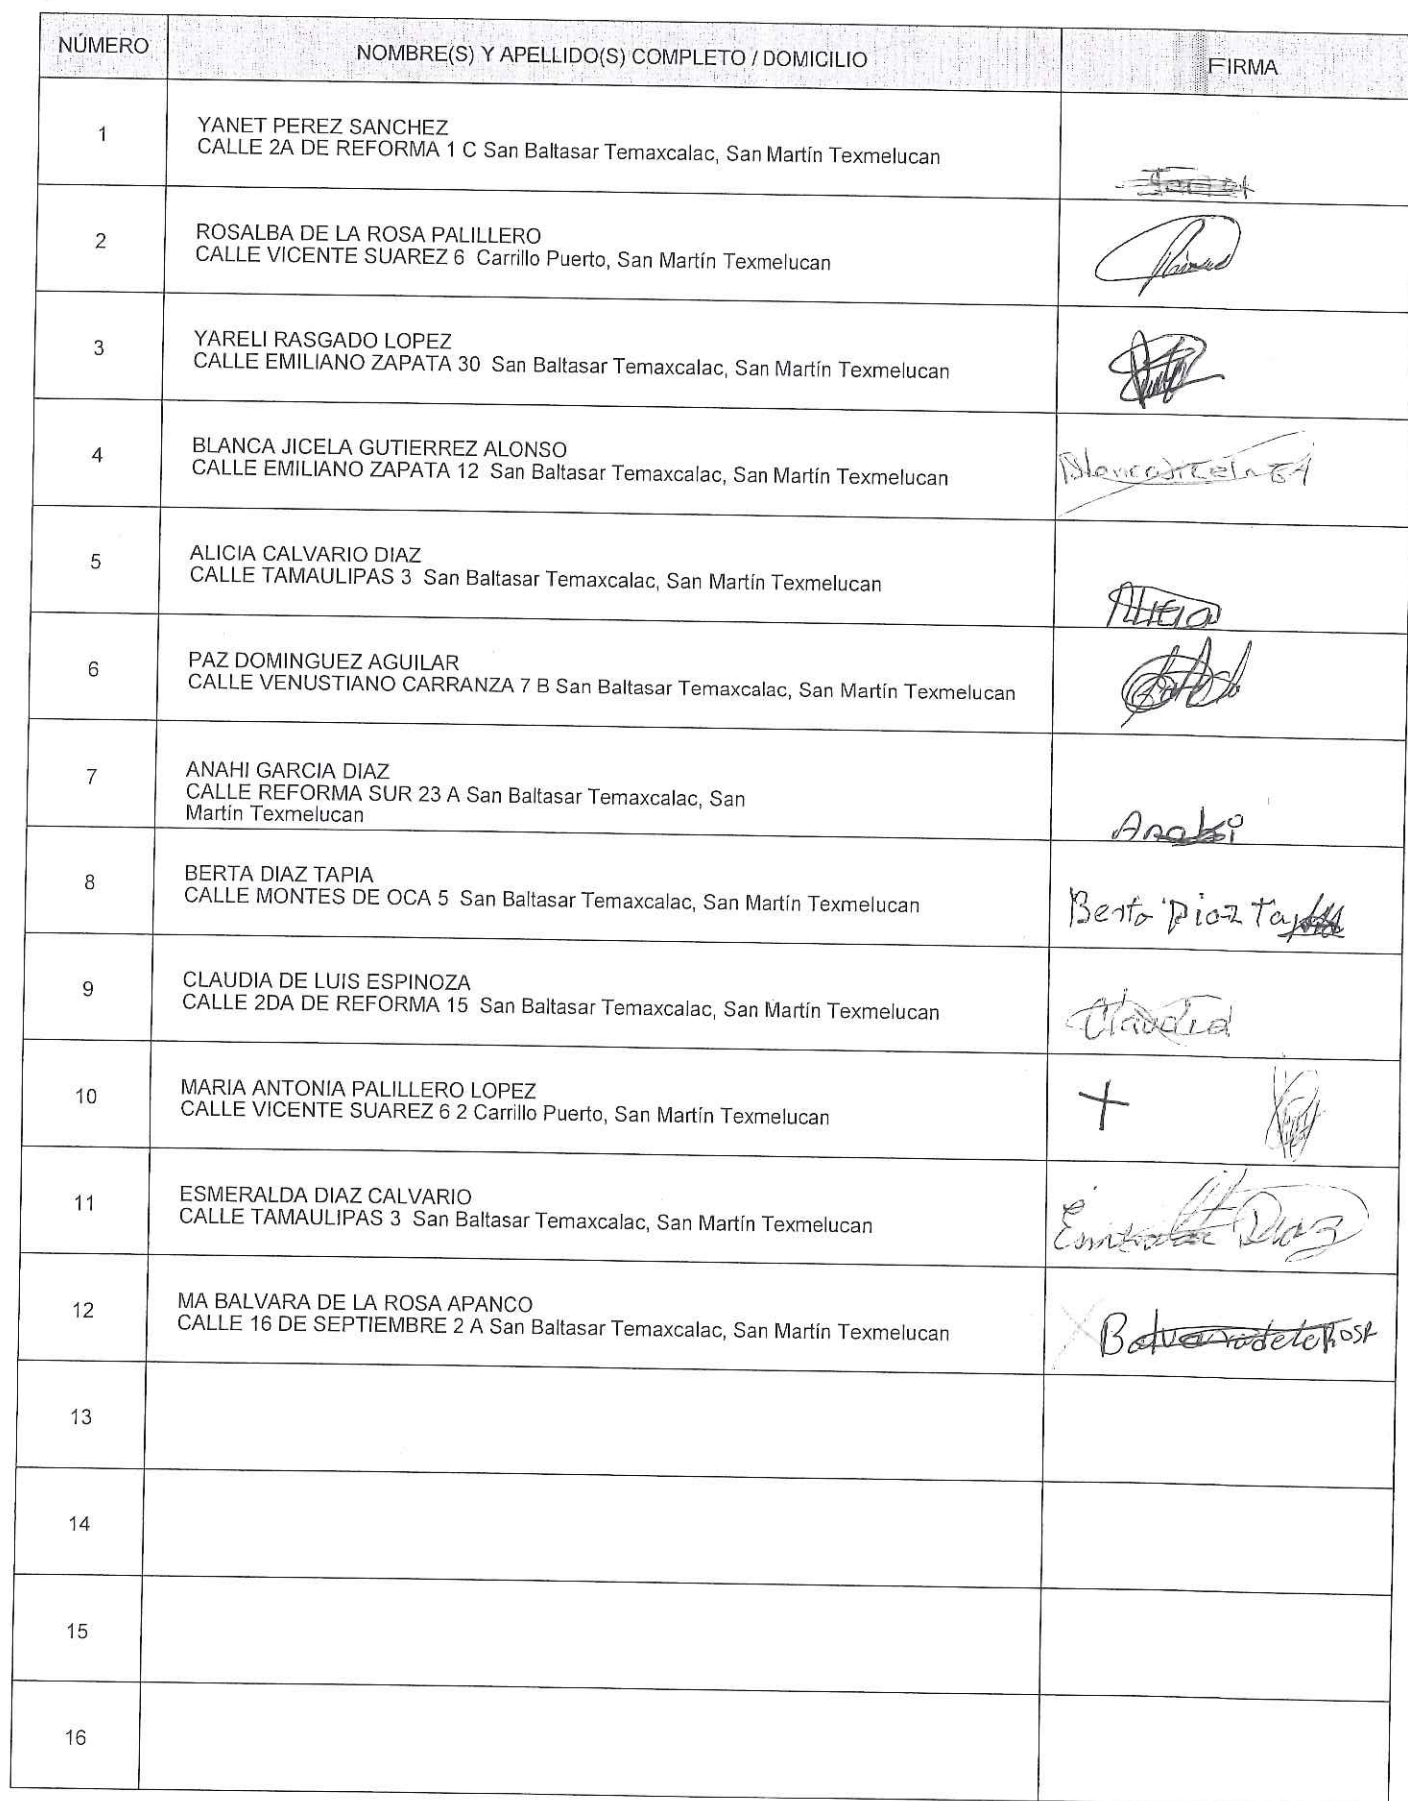 NÚMERO NOMBRE(S) Y APELLIDO(S) COMPLETO / DOMICILIO FIRMA
1 YANET PEREZ SANCHEZ
CALLE 2A DE REFORMA 1 C San Baltasar Temaxcalac, San Martín Texmelucan
2 ROSALBA DE LA ROSA PALILLERO
CALLE VICENTE SUAREZ 6 Carrillo Puerto, San Martín Texmelucan
3 YARELI RASGADO LOPEZ
CALLE EMILIANO ZAPATA 30 San Baltasar Temaxcalac, San Martín Texmelucan
4 BLANCA JICELA GUTIERREZ ALONSO
CALLE EMILIANO ZAPATA 12 San Baltasar Temaxcalac, San Martín Texmelucan
Blanca Jicela GA
5 ALICIA CALVARIO DIAZ
CALLE TAMAULIPAS 3 San Baltasar Temaxcalac, San Martín Texmelucan
Alicia
6 PAZ DOMINGUEZ AGUILAR
CALLE VENUSTIANO CARRANZA 7 B San Baltasar Temaxcalac, San Martín Texmelucan
7 ANAHI GARCIA DIAZ
CALLE REFORMA SUR 23 A San Baltasar Temaxcalac, San
Martín Texmelucan
Anahi
8 BERTA DIAZ TAPIA
CALLE MONTES DE OCA 5 San Baltasar Temaxcalac, San Martín Texmelucan
Berta Diaz
9 CLAUDIA DE LUIS ESPINOZA
CALLE 2DA DE REFORMA 15 San Baltasar Temaxcalac, San Martín Texmelucan
Claudia
10 MARIA ANTONIA PALILLERO LOPEZ
CALLE VICENTE SUAREZ 6 2 Carrillo Puerto, San Martín Texmelucan
11 ESMERALDA DIAZ CALVARIO
CALLE TAMAULIPAS 3 San Baltasar Temaxcalac, San Martín Texmelucan
Esmeralda Diaz
12 MA BALVARA DE LA ROSA APANCO
CALLE 16 DE SEPTIEMBRE 2 A San Baltasar Temaxcalac, San Martín Texmelucan
Balvara de la Rosa
13
14
15
16